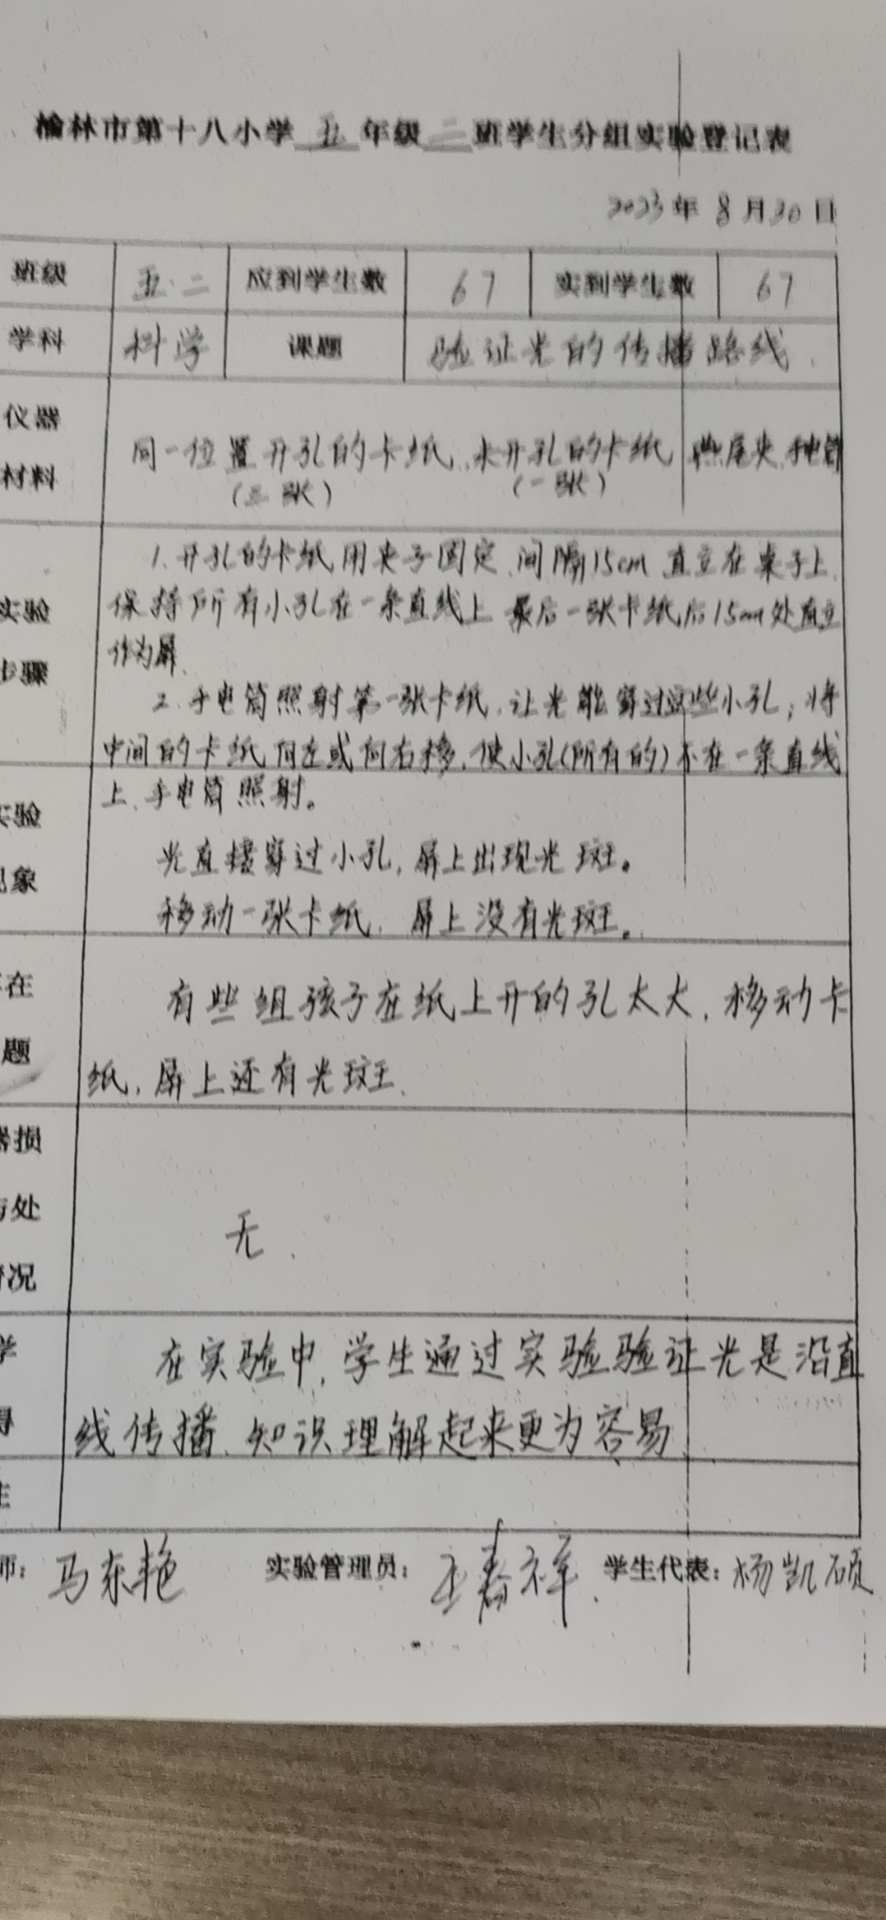 榆林市第十八小学 五 年级 二 班学生分组实验登记表
2023年 8 月30日
班级 五.二 应到学生数 67 实到学生数 67
学科 科学 课题 验证光的传播路线
仪器
材料
同一位置开孔的卡纸、未开孔的卡纸 燕尾夹、手电筒
(三张) (一张)
实验
步骤
1.开孔的卡纸用夹子固定,间隔15cm 直立在桌子上,
保持所有小孔在一条直线上 最后一张卡纸后15cm处直立
作为屏.
2.手电筒照射第一张卡纸,让光能穿过这些小孔;将
中间的卡纸向左或向右移,使小孔(所有的)不在一条直线
上、手电筒照射。
实验
现象
光直接穿过小孔,屏上出现光斑。
移动一张卡纸,屏上没有光斑。
在
题
有些组孩子在纸上开的孔太大,移动卡
纸,屏上还有光斑.
器损
与处
情况
无.
学
得
在实验中,学生通过实验验证光是沿直
线传播、知识理解起来更为容易.
注
师: 马东艳 实验管理员: 王春祥. 学生代表: 杨凯硕